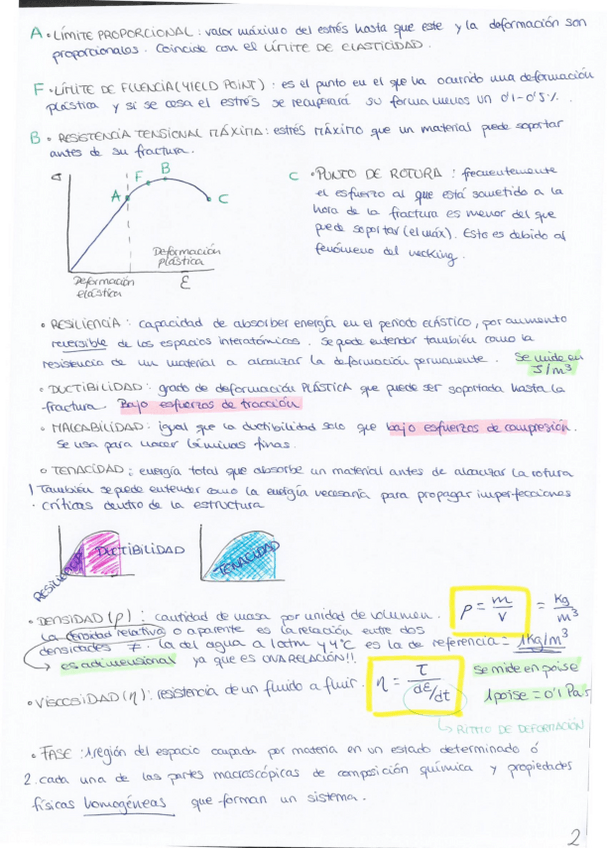 A • LÍMITE PROPORCIONAL : valor máximo del estrés hasta que este y la deformación son
proporcionales. Coincide con el LÍMITE DE ELASTICIDAD.
F • LÍMITE DE FLUENCIA (YIELD POINT) : es el punto en el que ha ocurrido una deformación
plástica y si se cesa el estrés se recuperará su forma menos un 0'1-0'5%.
B • RESISTENCIA TENSIONAL MÁXIMA: estrés MÁXIMO que un material puede soportar
antes de su fractura.
σ
A
F
B
C
Deformación
plástica
Deformación
elástica
ε
C • PUNTO DE ROTURA : frecuentemente
el esfuerzo al que está sometido a la
hora de la fractura es menor del que
puede soportar (el máx). Esto es debido al
fenómeno del necking.
• RESILIENCIA : capacidad de absorber energía en el periodo ELÁSTICO, por aumento
reversible de los espacios interatómicos. Se puede entender también como la
resistencia de un material a alcanzar la deformación permanente. Se mide en
J/m³
• DUCTIBILIDAD : grado de deformación PLÁSTICA que puede ser soportada hasta la
fractura. Bajo esfuerzos de tracción
• MALEABILIDAD : igual que la ductibilidad solo que bajo esfuerzos de compresión.
Se usa para hacer láminas finas.
• TENACIDAD : energía total que absorbe un material antes de alcanzar la rotura
! También se puede entender como la energía necesaria para propagar imperfecciones
críticas dentro de la estructura
RESILIENCIA
DUCTIBILIDAD
TENACIDAD
• DENSIDAD (ρ) : cantidad de masa por unidad de volumen.
ρ = m/v = Kg/m³
La densidad relativa o aparente es la relación entre dos
densidades ≠. La del agua a 1atm y 4°C es la de referencia = 1Kg/m³
→ es adimensional ya que es UNA RELACIÓN!!
• VISCOSIDAD (η) : resistencia de un fluido a fluir.
η = τ / dε/dt
se mide en poise
1 poise = 0'1 Pa·s
↳ RITMO DE DEFORMACIÓN
• FASE : 1 región del espacio ocupada por materia en un estado determinado ó
2. cada una de las partes macroscópicas de composición química y propiedades
físicas homogéneas que forman un sistema.
2